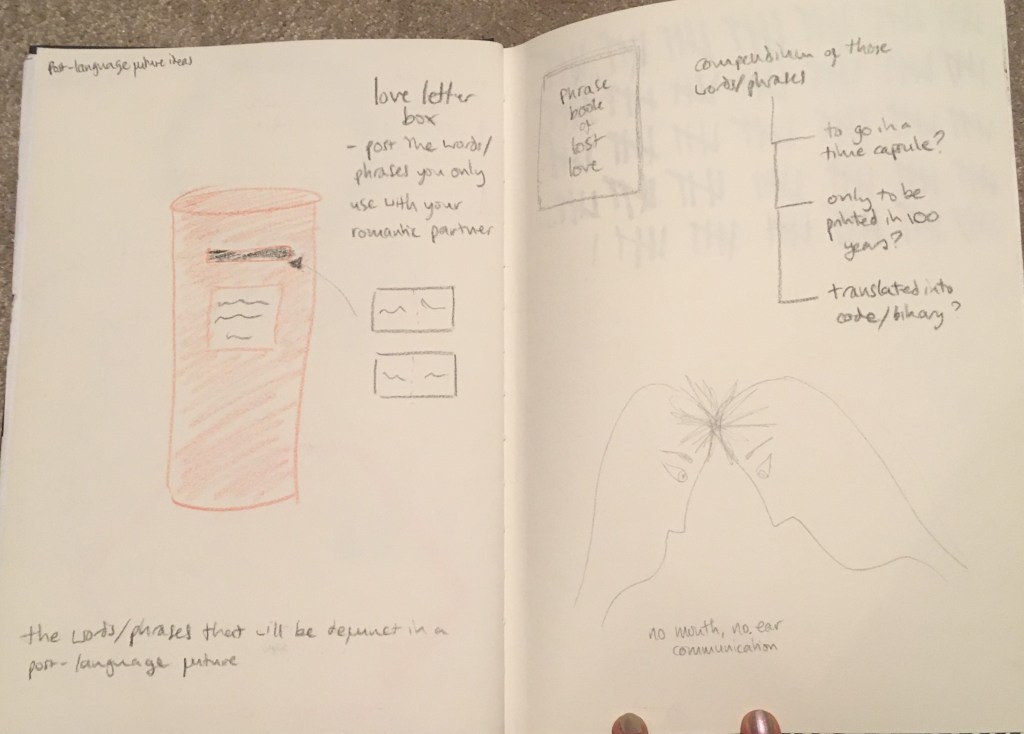 Post-language future ideas
love letter
box
- post the words/
phrases you only
use with your
romantic partner
the words/phrases that will be defunct in a
post-language future
phrase
book
of
lost
love
compendium of those
words/phrases
to go in a
time capsule?
only to be
printed in 100
years?
translated into
code/binary?
no mouth, no ear
communication